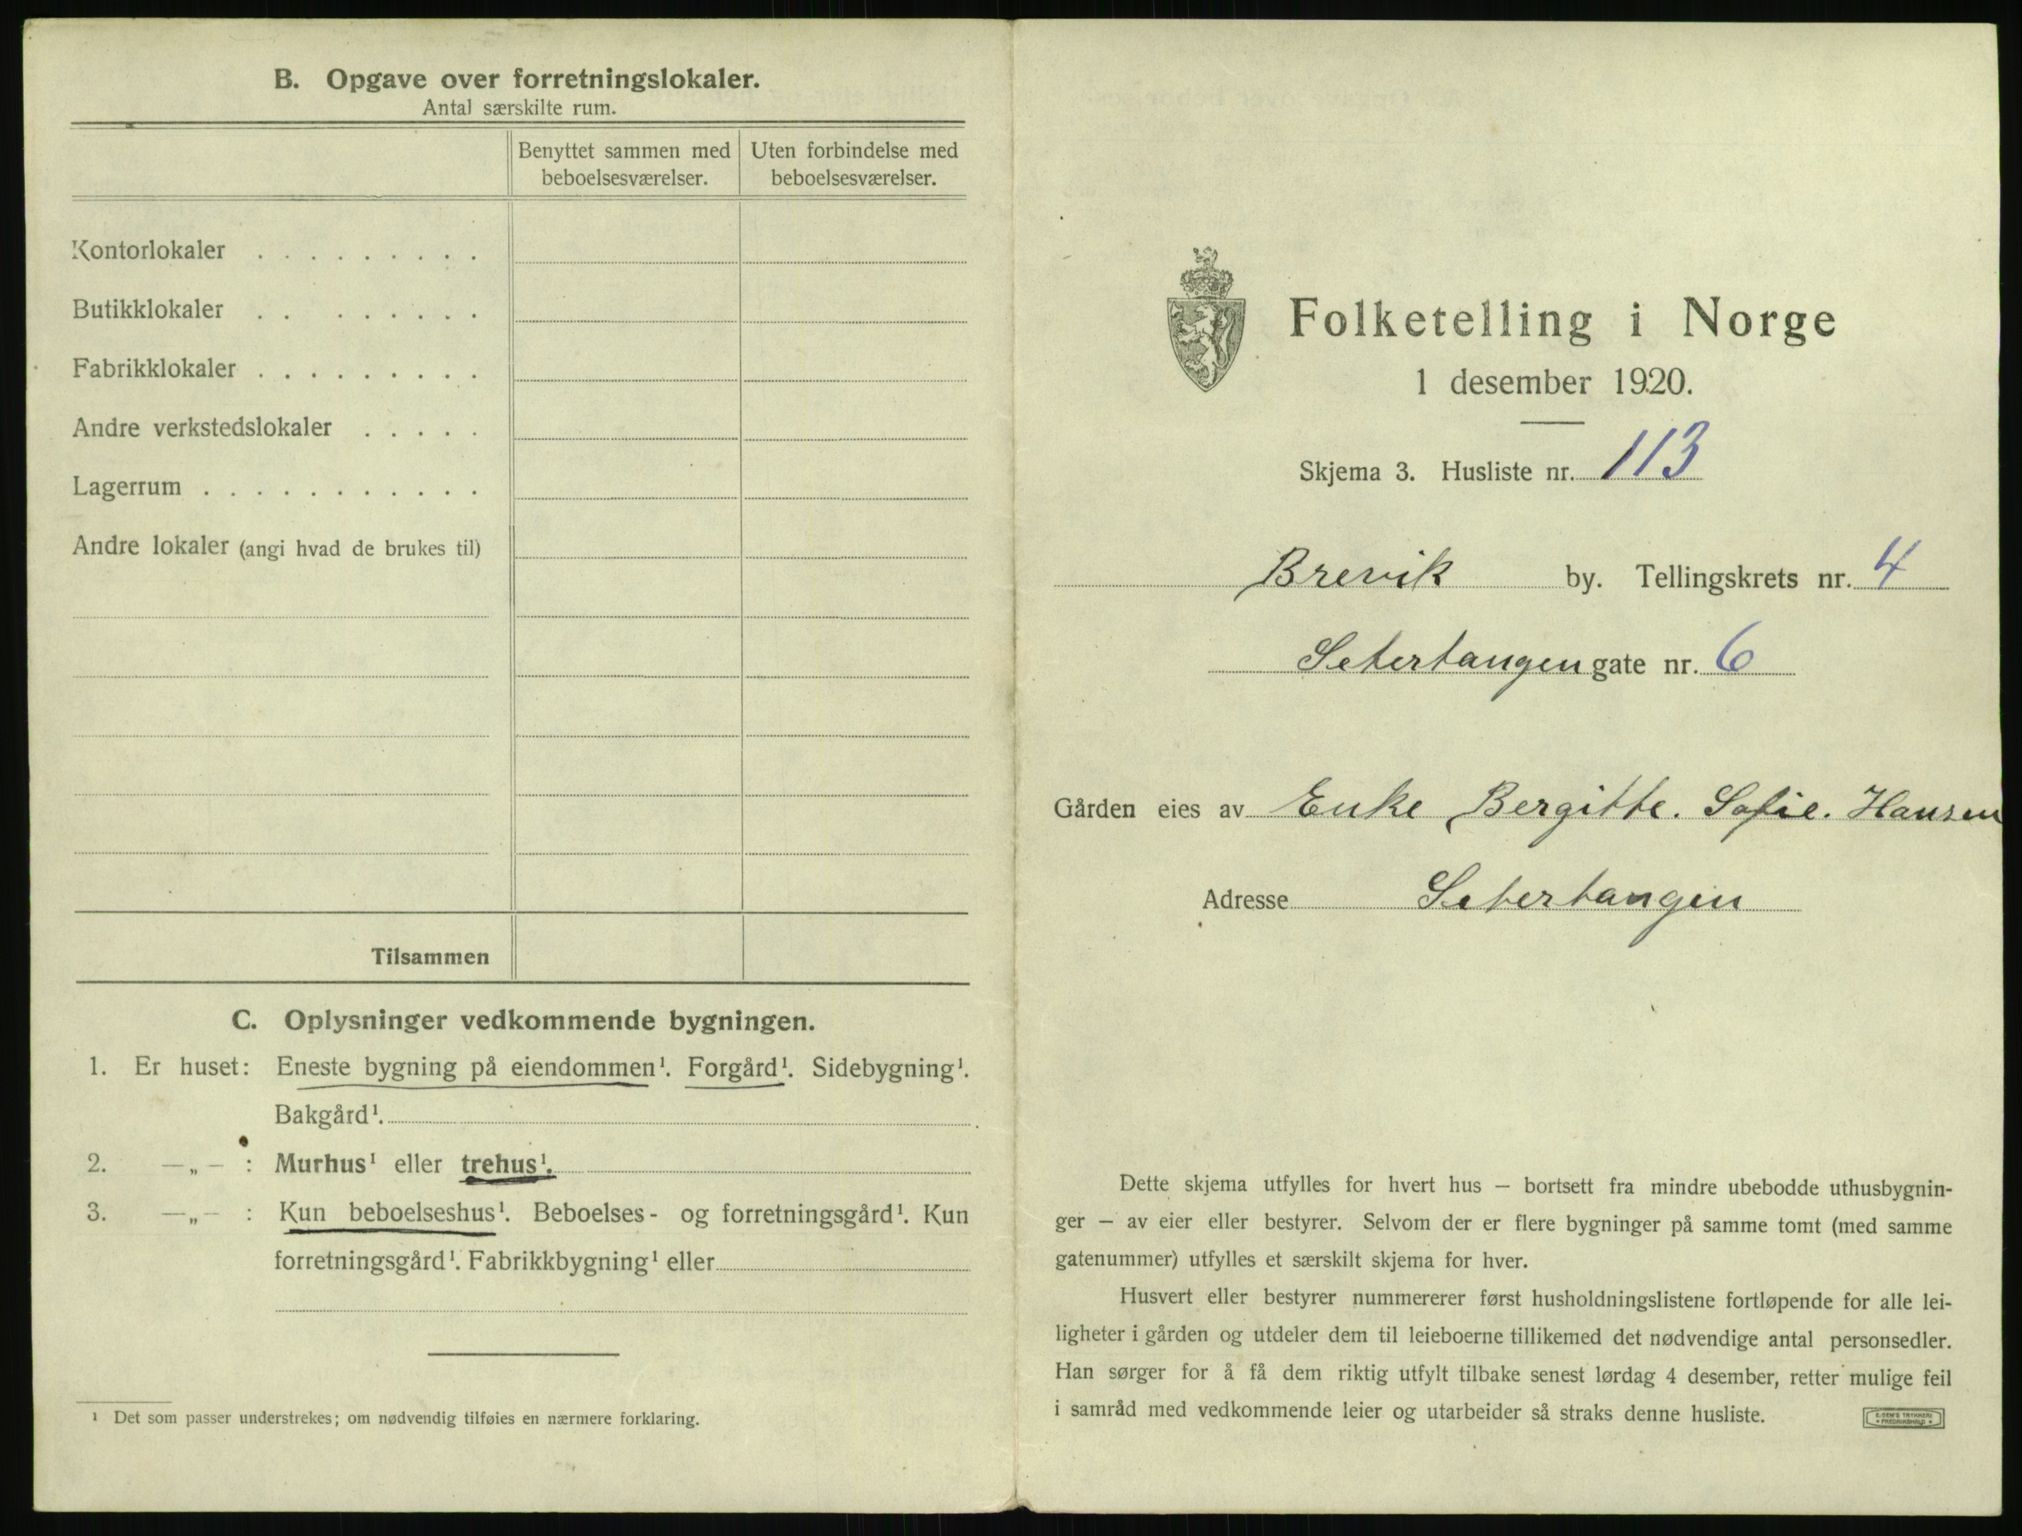 B. Opgave over forretningslokaler.
Antal særskilte rum.
Benyttet sammen med beboelsesværelser.
Uten forbindelse med beboelsesværelser.
Kontorlokaler . . . . . . . . .
Butikklokaler . . . . . . . .
Fabrikklokaler . . . . . . . . .
Andre verkstedslokaler . . . . .
Lagerrum . . . . . . . . . . .
Andre lokaler (angi hvad de brukes til)
Tilsammen
C. Oplysninger vedkommende bygningen.
1. Er huset: Eneste bygning på eiendommen¹. Forgård¹. Sidebygning¹.
Bakgård¹.
2. —„— : Murhus¹ eller trehus¹.
3. —„— : Kun beboelseshus¹. Beboelses- og forretningsgård¹. Kun
forretningsgård¹. Fabrikkbygning¹ eller
¹ Det som passer understrekes; om nødvendig tilføies en nærmere forklaring.
Folketelling i Norge
1 desember 1920.
Skjema 3. Husliste nr. 113
Brevik by. Tellingskrets nr. 4
Setertangen gate nr. 6
Gården eies av Enke Bergitte. Sofie. Hansen
Adresse Setertangen
Dette skjema utfylles for hvert hus — bortsett fra mindre ubebodde uthusbygnin-
ger — av eier eller bestyrer. Selvom der er flere bygninger på samme tomt (med samme
gatenummer) utfylles et særskilt skjema for hver.
Husvert eller bestyrer nummererer først husholdningslistene fortløpende for alle lei-
ligheter i gården og utdeler dem til leieboerne tillikemed det nødvendige antal personsedler.
Han sørger for å få dem riktig utfylt tilbake senest lørdag 4 desember, retter mulige feil
i samråd med vedkommende leier og utarbeider så straks denne husliste.
E. SEM'S TRYKKERI
• FREDRIKSHALD •